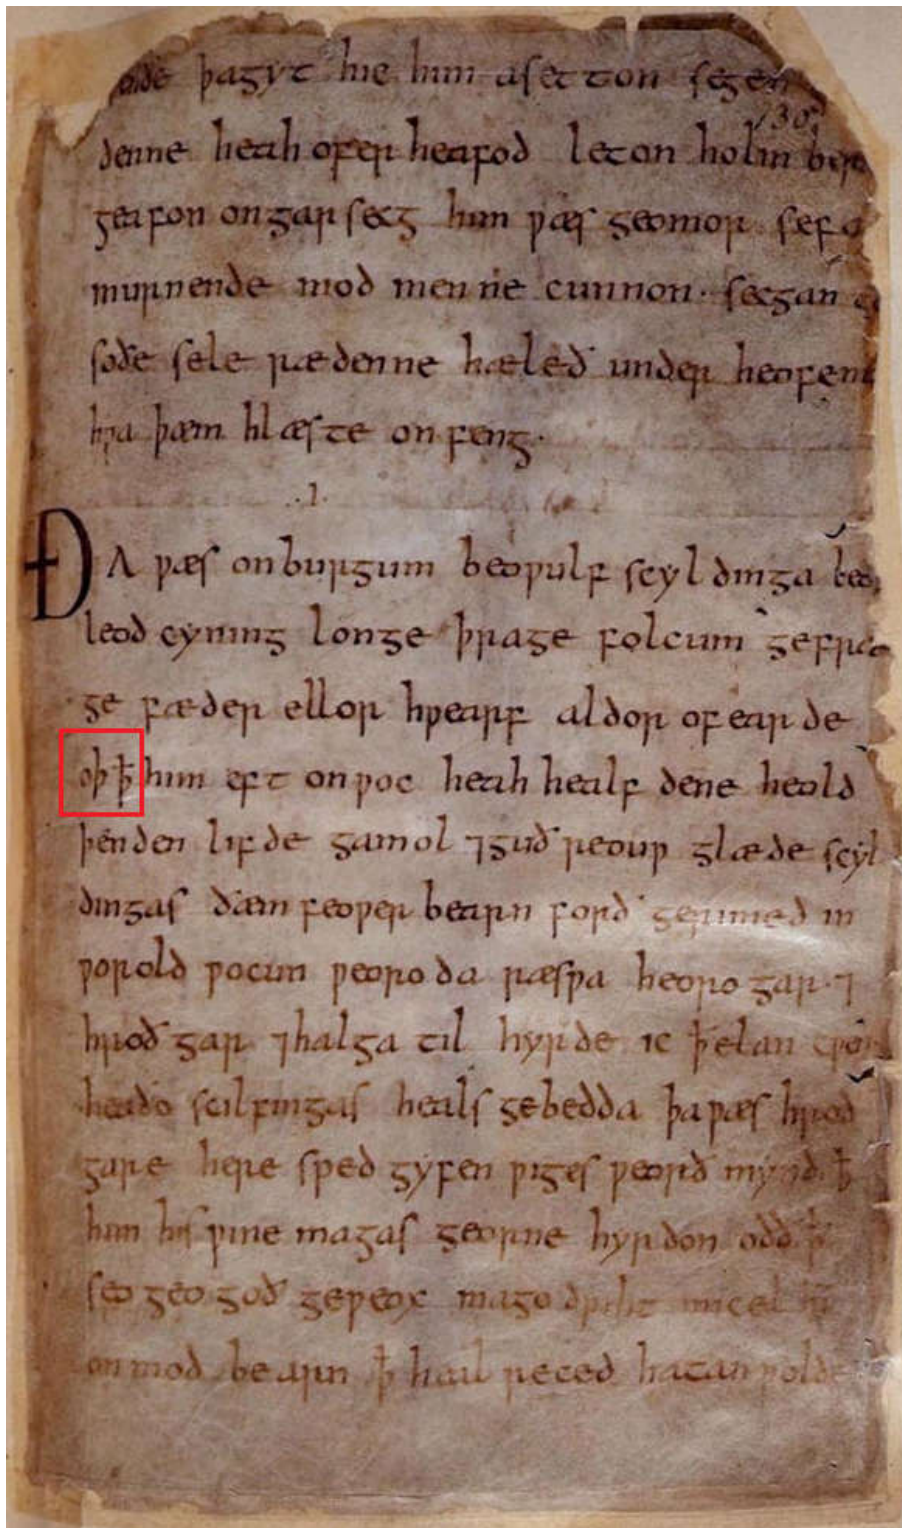 þagyt hie him asetton segen
130
denne heah ofer heafod leton holm ber
geafon ongarsecg him ƿæs geomor sefa
murnende mod men ne cunnon· secgan
soðe sele rædenne hæleð under heofenū
hƿa þæm hlæste onfeng·
·I·
ÐA ƿæs onburgum beoƿulf scyldinga
leod cyning longe þrage folcum gefræ
ge fæder ellor hƿearf aldor ofearde
oþꝥ him eft onƿoc heah healfdene heold
þenden lifde gamol ⁊guðreouƿ glæde scyl
dingas ðæm feoƿer bearn forð gerimed in
ƿorold ƿocun ƿeoroda ræsƿa heorogar·⁊
hroðgar ⁊halga til hyrde ic ꝥelan cƿen
heaðo scilfingas heals gebedda þaƿæs hroð
gare here sped gyfen ƿiges ƿeorðmynd ꝥ
him his ƿine magas georne hyrdon oðð ꝥ
seo geogoð geƿeox mago driht micel
onmod bearn ꝥ heal reced hatan ƿolde